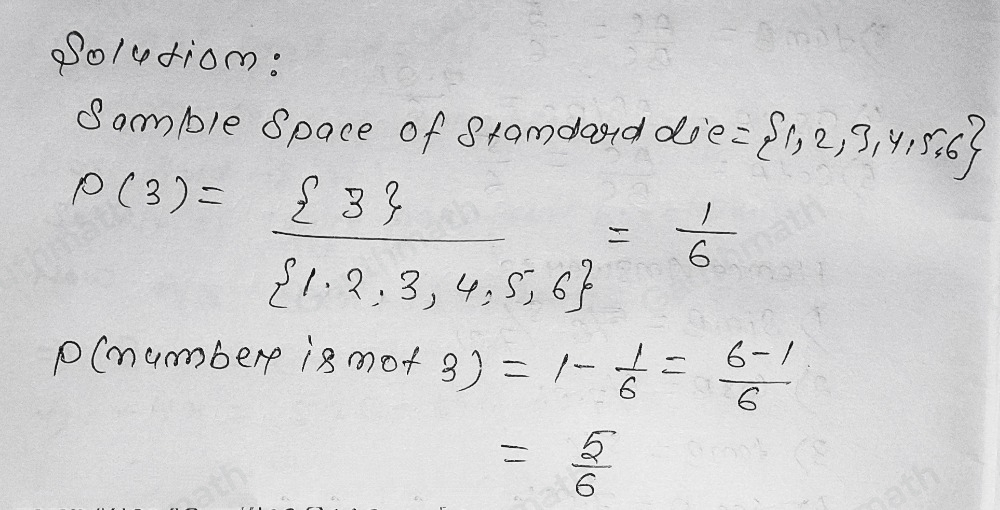 Solution:
Sample Space of Standard die = {1, 2, 3, 4, 5, 6}
P(3) = {3} / {1, 2, 3, 4, 5, 6} = 1/6
P(number is not 3) = 1 - 1/6 = 6-1/6
= 5/6